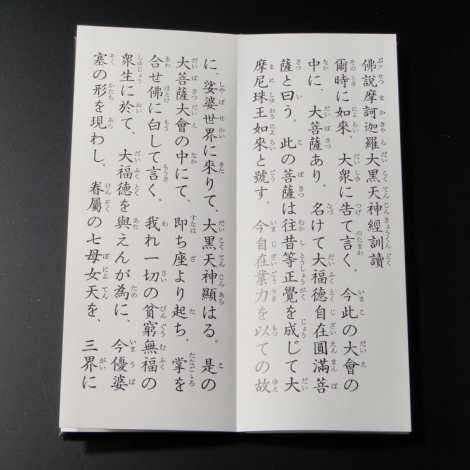 佛說摩訶迦羅大黑天神經訓讀
爾時に如來、大衆に告て言く、今此の大會の
中に、大菩薩あり、名けて大福德自在圓滿菩
薩と曰う。此の菩薩は往昔等正覺を成して大
摩尼珠王如來と號す。今自在業力を以ての故
に、娑婆世界に來りて、大黑天神顯はる。是の
大菩薩大會の中にて、即ち座より起ち、掌を
合せ佛に白して言く、我れ一切の貧窮無福の
衆生に於て、大福德を與えんが為に、今優婆
塞の形を現わし、眷屬の七母女天を、三界に